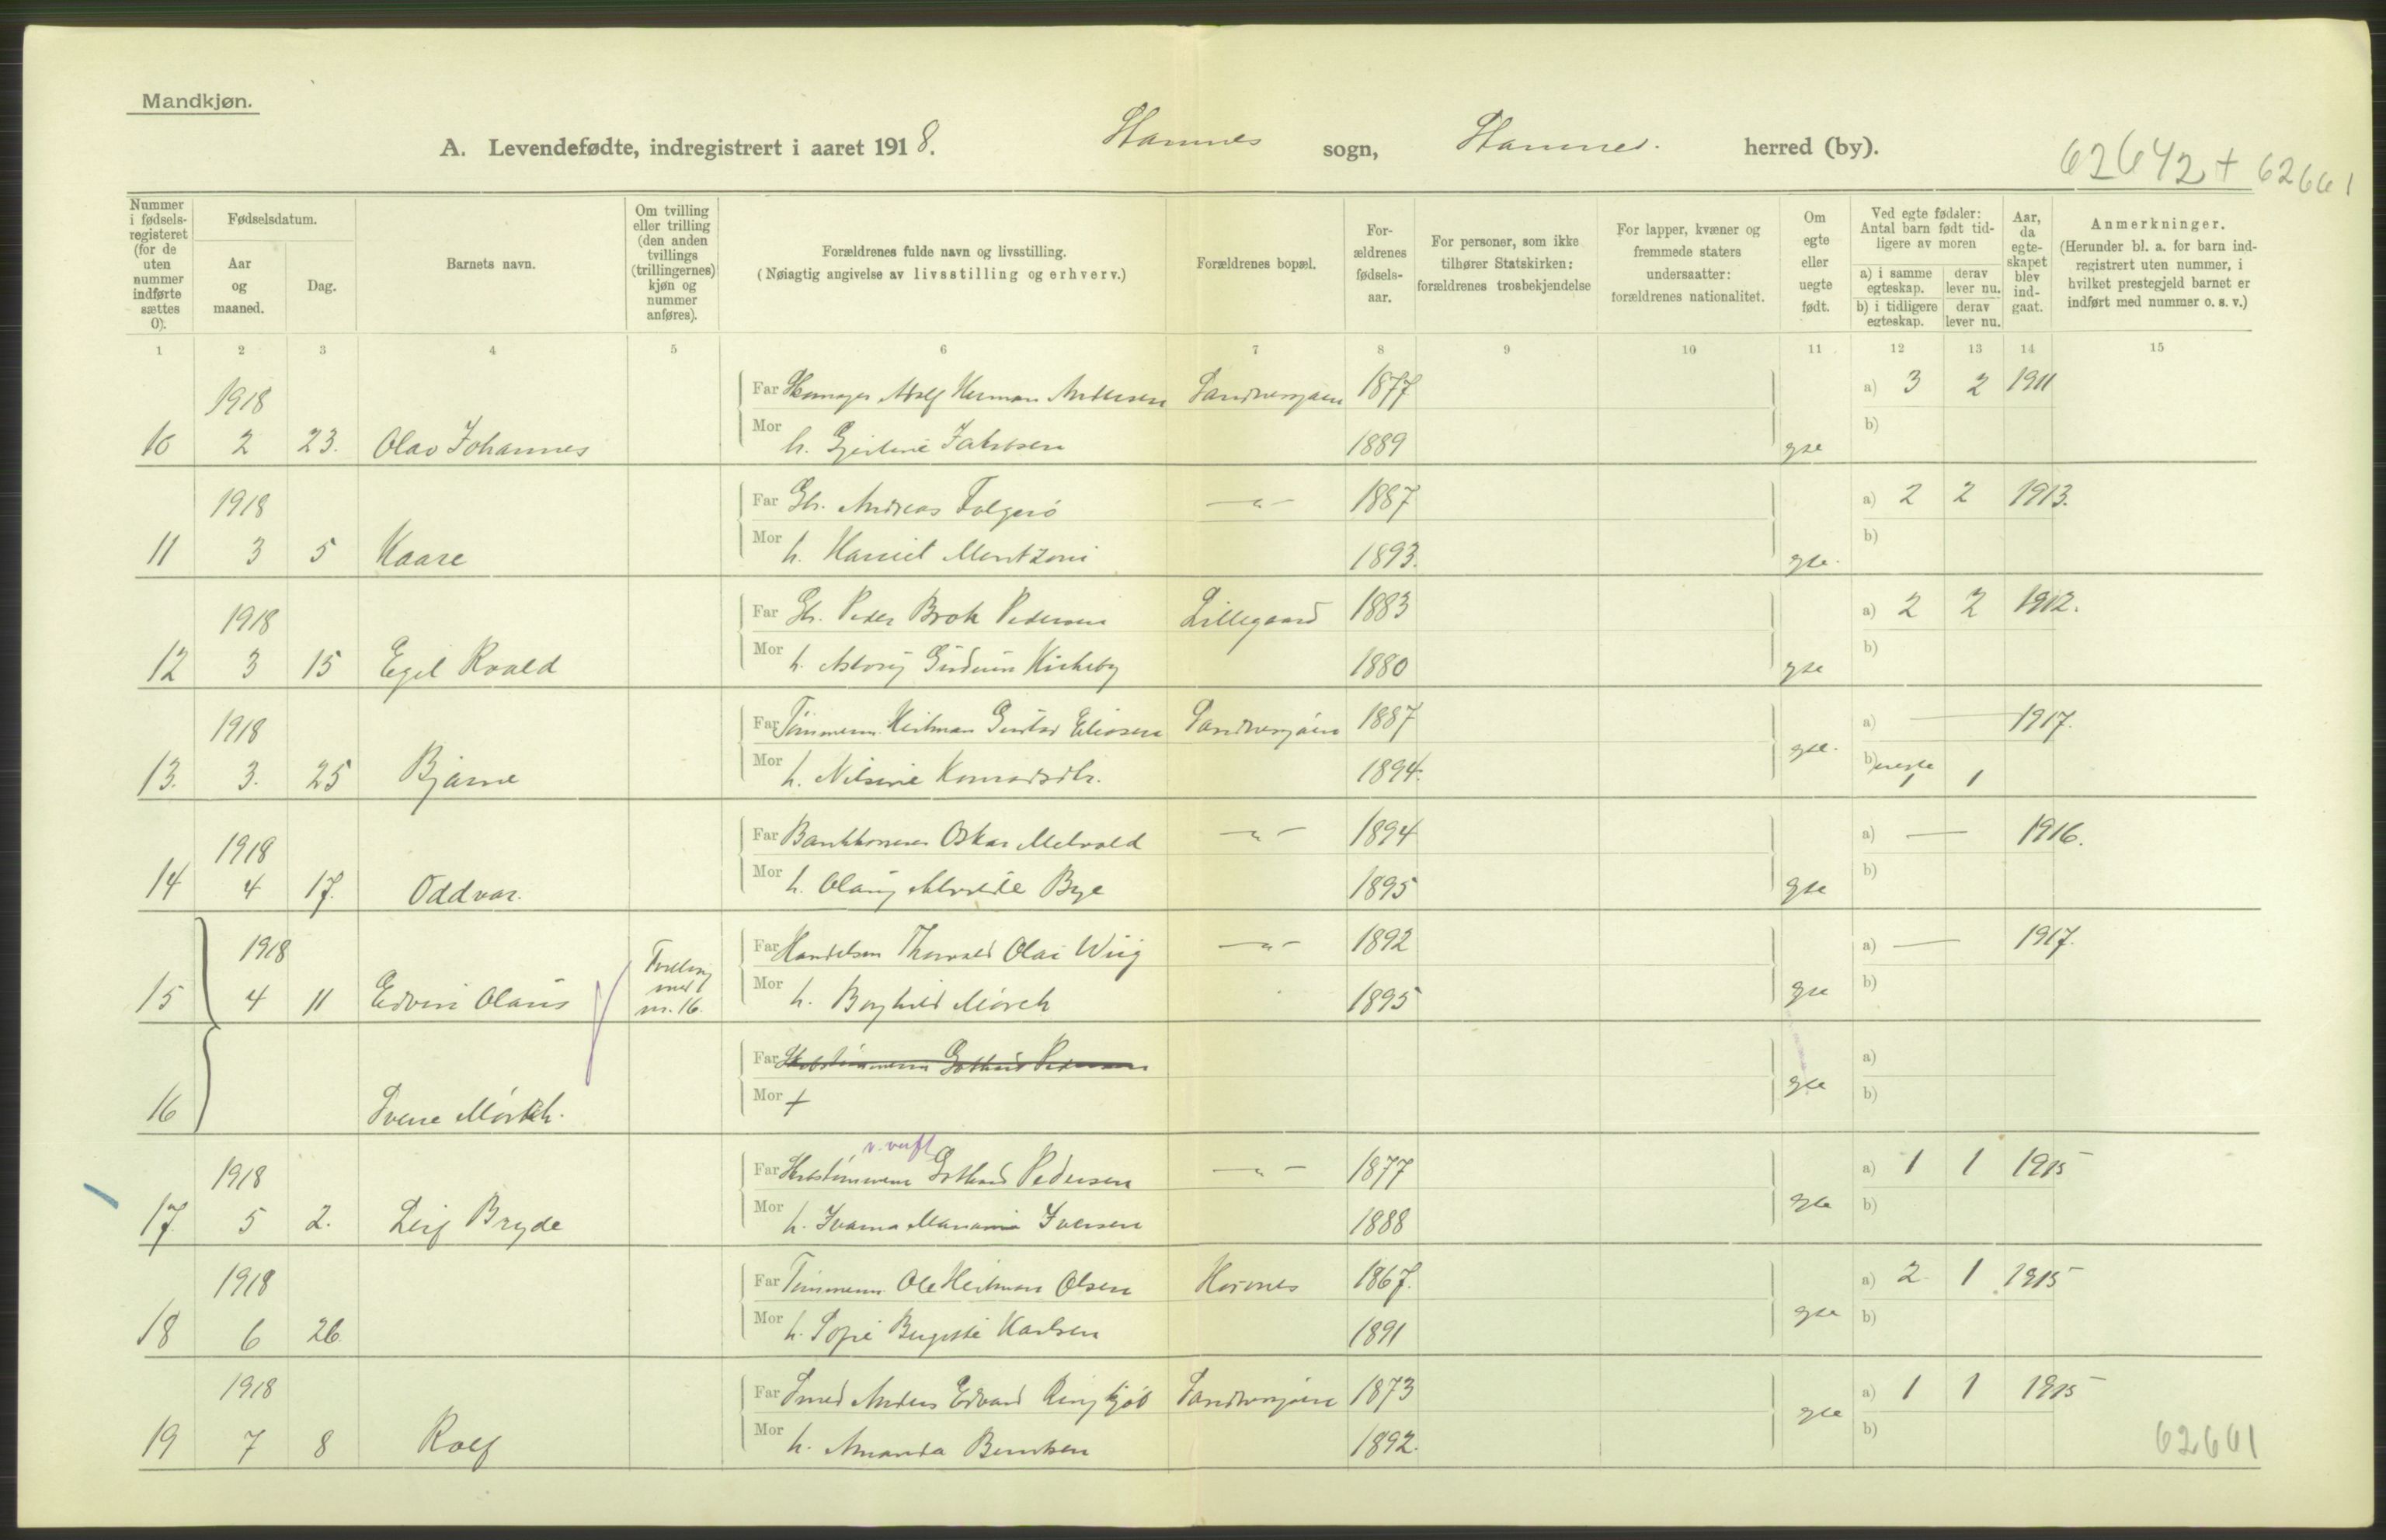 Mandkjøn.
A. Levendefødte, indregistrert i aaret 1918. Stamnes sogn, Stamnes. herred (by).
62642 + 62661
Nummer i fødsels-registeret (for de uten nummer indførte sættes 0).
Fødselsdatum.
Aar og maaned.
Dag.
Barnets navn.
Om tvilling eller trilling (den anden tvillings (trillingernes) kjøn og nummer anføres).
Forældrenes fulde navn og livsstilling.
(Nøiagtig angivelse av livsstilling og erhverv.)
Forældrenes bopæl.
For-ældrenes fødsels-aar.
For personer, som ikke tilhører Statskirken: forældrenes trosbekjendelse
For lapper, kvæner og fremmede staters undersaatter: forældrenes nationalitet.
Om egte eller uegte født.
Ved egte fødsler: Antal barn født tid-ligere av moren
a) i samme egteskap. derav lever nu.
b) i tidligere egteskap. derav lever nu.
Aar, da egte-skapet blev ind-gaat.
Anmerkninger.
(Herunder bl. a. for barn ind-registrert uten nummer, i hvilket prestegjeld barnet er indført med nummer o. s. v.)
1 2 3 4 5 6 7 8 9 10 11 12 13 14 15
1918 Far Adolf Herman Andersen Sandnessjøen 1877 a) 3 2 1911
10 2 23. Olav Johannes Mor h. Jakobsen 1889 gte b)
1918 Far Andreas Folgerö —„— 1887 a) 2 2 1913.
11 3 5 Kaare Mor h. Mentzoni 1893. gte. b)
1918 Far Peder Brok Pedersen Lillegaard 1883 a) 2 2 1912.
12 3 15 Egil Roald Mor h. Gudrun Kirkeby 1880 gte b)
1918 Far Tömmerm. Heitman Gustav Eliasen Sandnessjöen 1887 a) — 1917.
13. 3. 25 Bjarne Mor h. Nilsine Konradsdtr. 1894. gte. b) uegte 1 1
1918 Far Oskar Melvold —„— 1894 a) — 1916.
14 4 17. Oddvar. Mor h. Olaug Bye 1895 gte b)
1918 Tvilling med nr. 16. Far Handelsm Thorvald Olai Wiig —„— 1892 a) — 1917.
15 4 11 Edvin Olaus Mor h. Borghild Mörch 1895 gte b)
Far Gothard Pedersen a)
16 Sverre Mörch. Mor + gte b)
v. verft
1918 Far Gothard Pedersen —„— 1877 a) 1 1 1915
17. 5 2. Leif Bryde Mor h. Ivarna Iversen 1888 gte b)
1918 Far Tömmerm. Ole Heitman Olsen 1867. a) 2 1 1915
18 6 26 Mor h. Sofie Bergitte Karlsen 1891 gte b)
1918 Far Smed Anders Edvard Ringkjöb Sandnessjöen 1873 a) 1 1 1915
19 7 8 Rolf Mor h. Amanda Berntsen 1892. gte b)
62661